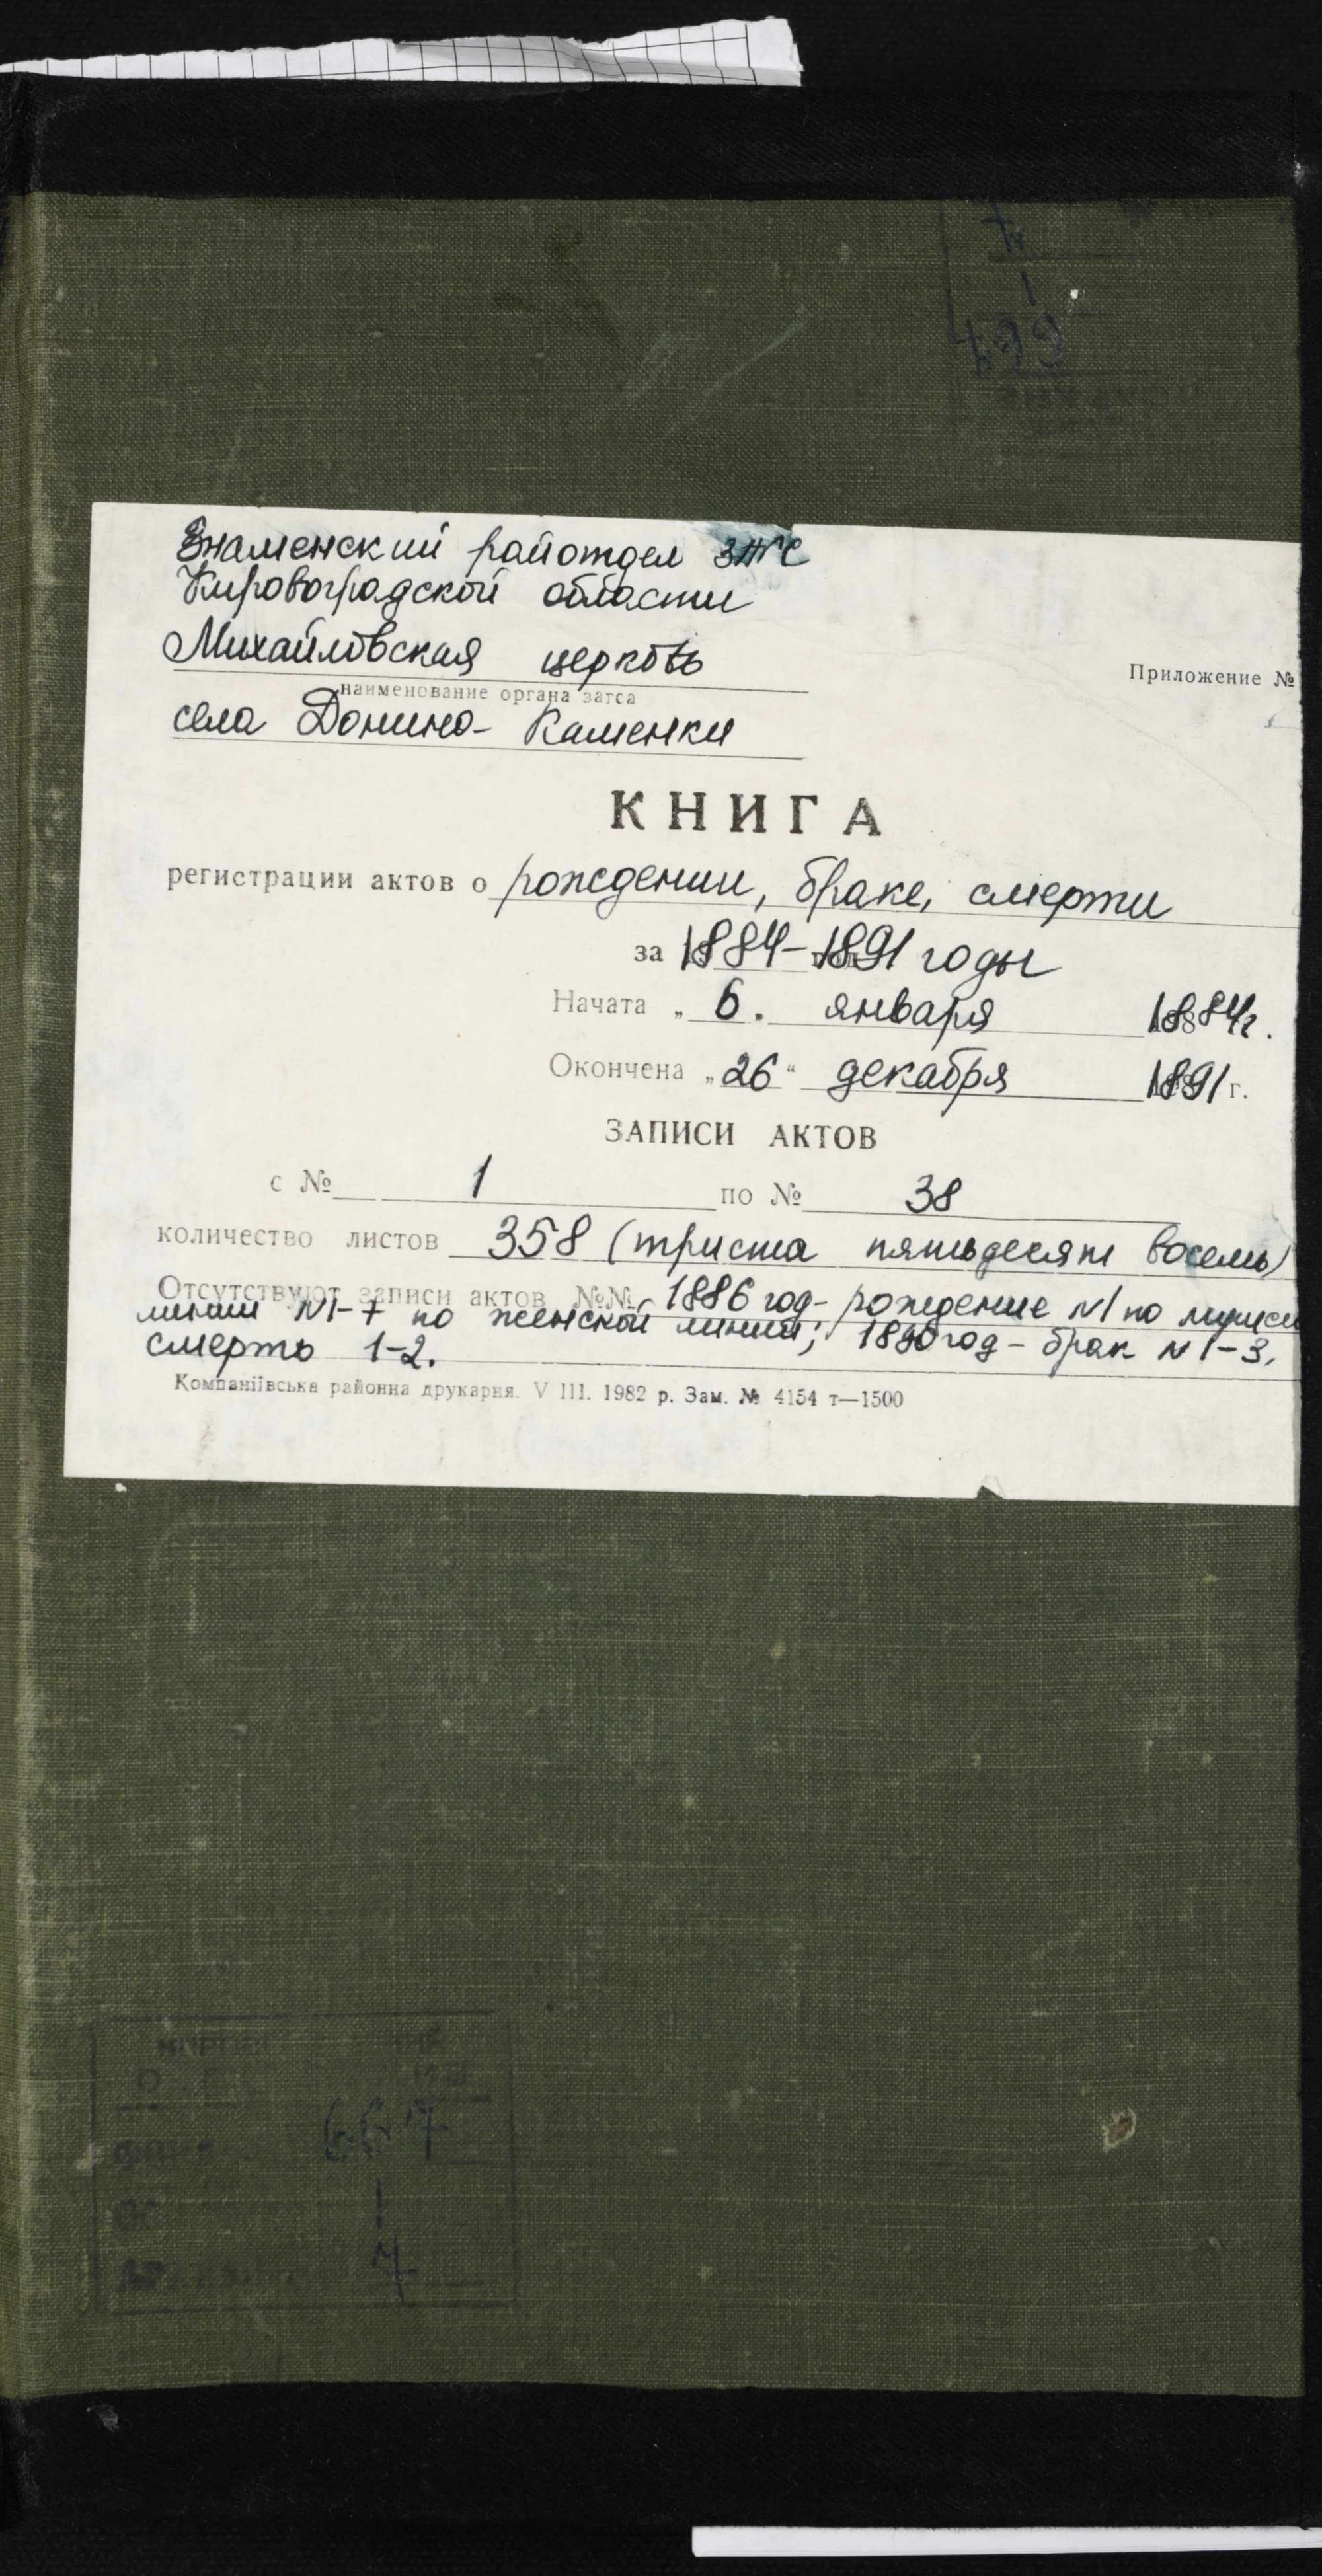 499
Знаменский райотдел ЗАГС
Кировоградской области
Михайловская церковь
Приложение №
наименование органа загса
села Донино-Каменки
КНИГА
регистрации актов о рождении, браке, смерти
за 1884-1891 годы
Начата „ 6 „ января 1884 г.
Окончена „ 26 “ декабря 1891 г.
ЗАПИСИ АКТОВ
с № 1 по № 38
количество листов 358 (триста пятьдесят восемь)
Отсутствуют записи актов №№ 1886 год - рождение №1 по мужск
линии №1-7 по женской линии; 1890 год - брак №1-3,
смерть 1-2.
Компаніївська районна друкарня. VIII. 1982 р. Зам. № 4154 т—1500
667
1
7